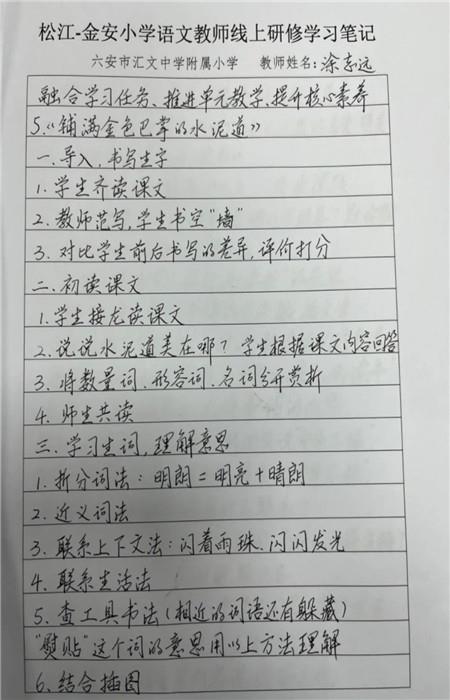 松江-金安小学语文教师线上研修学习笔记
六安市汇文中学附属小学 教师姓名:涂志远
融合学习任务、推进单元教学,提升核心素养
5.《铺满金色巴掌的水泥道》
一.导入,书写生字
1.学生齐读课文
2.教师范写,学生书空“墙”
3.对比学生前后书写的差异,评价打分
二.初读课文
1.学生接龙读课文
2.说说水泥道美在哪?学生根据课文内容回答
3.将数量词、形容词、名词分开赏析
4.师生共读
三.学习生词,理解意思
1.拆分词法:明朗=明亮+晴朗
2.近义词法
3.联系上下文法:闪着雨珠、闪闪发光
4.联系生活法
5.查工具书法(相近的词语还有躲藏)
“熨贴”这个词的意思用以上方法理解
6.结合插图